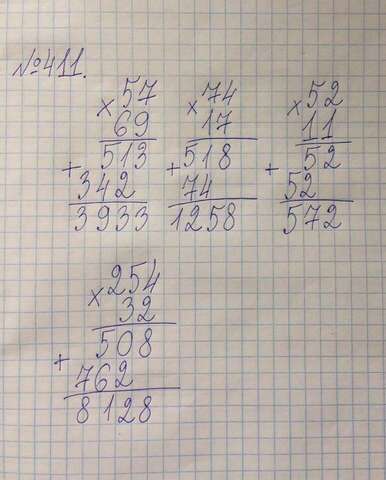 №411.
× 57
69
+ 513
342
3933
× 74
17
+ 518
74
1258
× 52
11
+ 52
52
572
× 254
32
+ 508
762
8128